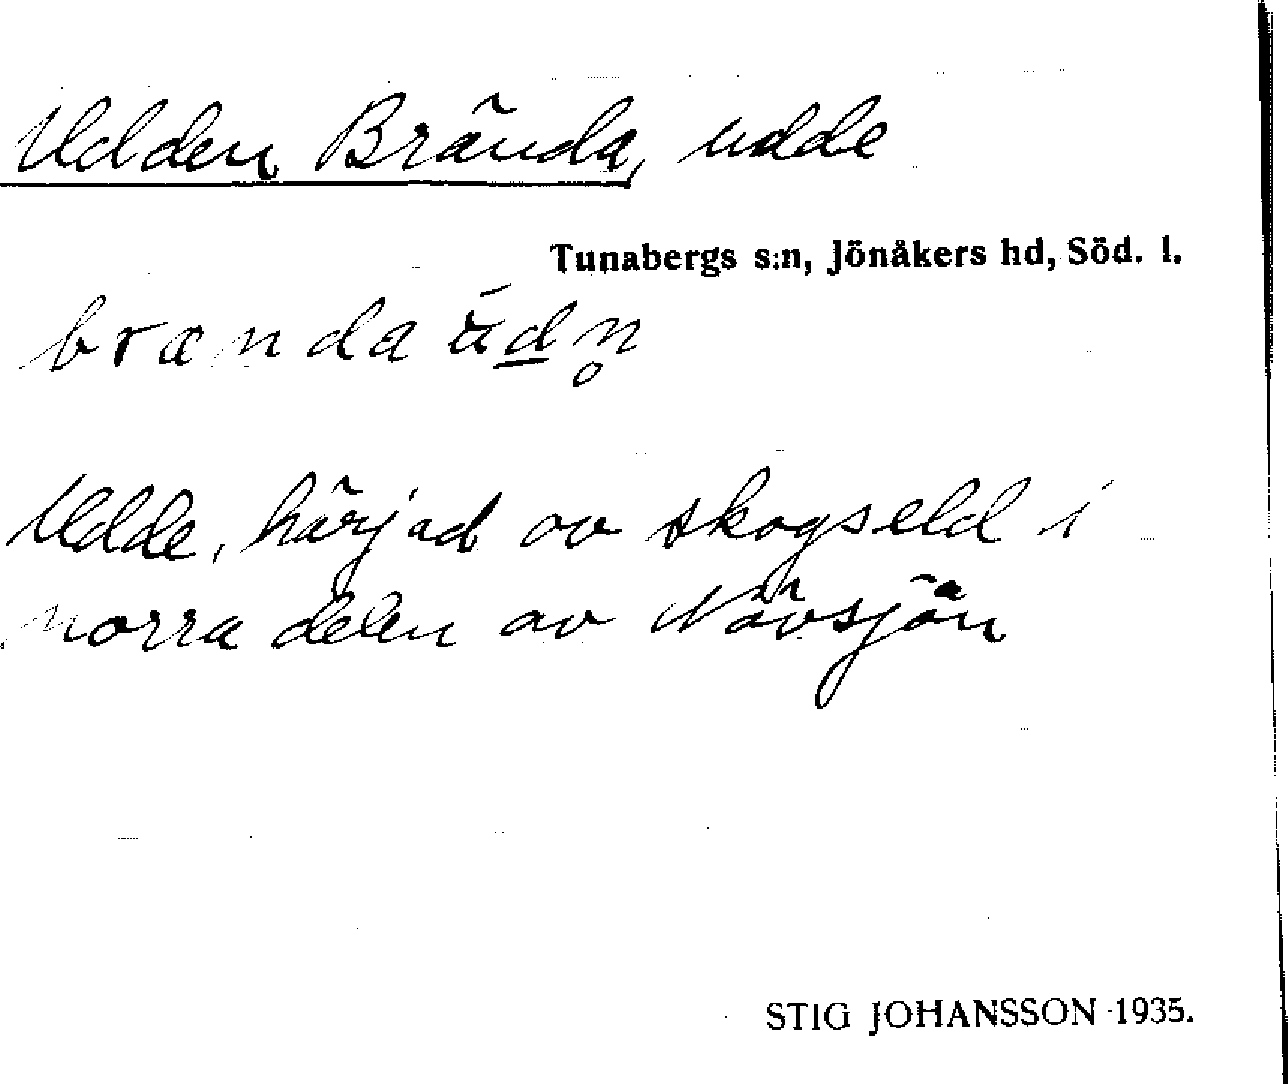 Udden Brända, udde
Tunabergs s:n, Jönåkers hd, Söd. l.
brænda ú̈d̲n̥
Udde, härjad av skogseld i
norra delen av Nävsjön
STIG JOHANSSON 1935.